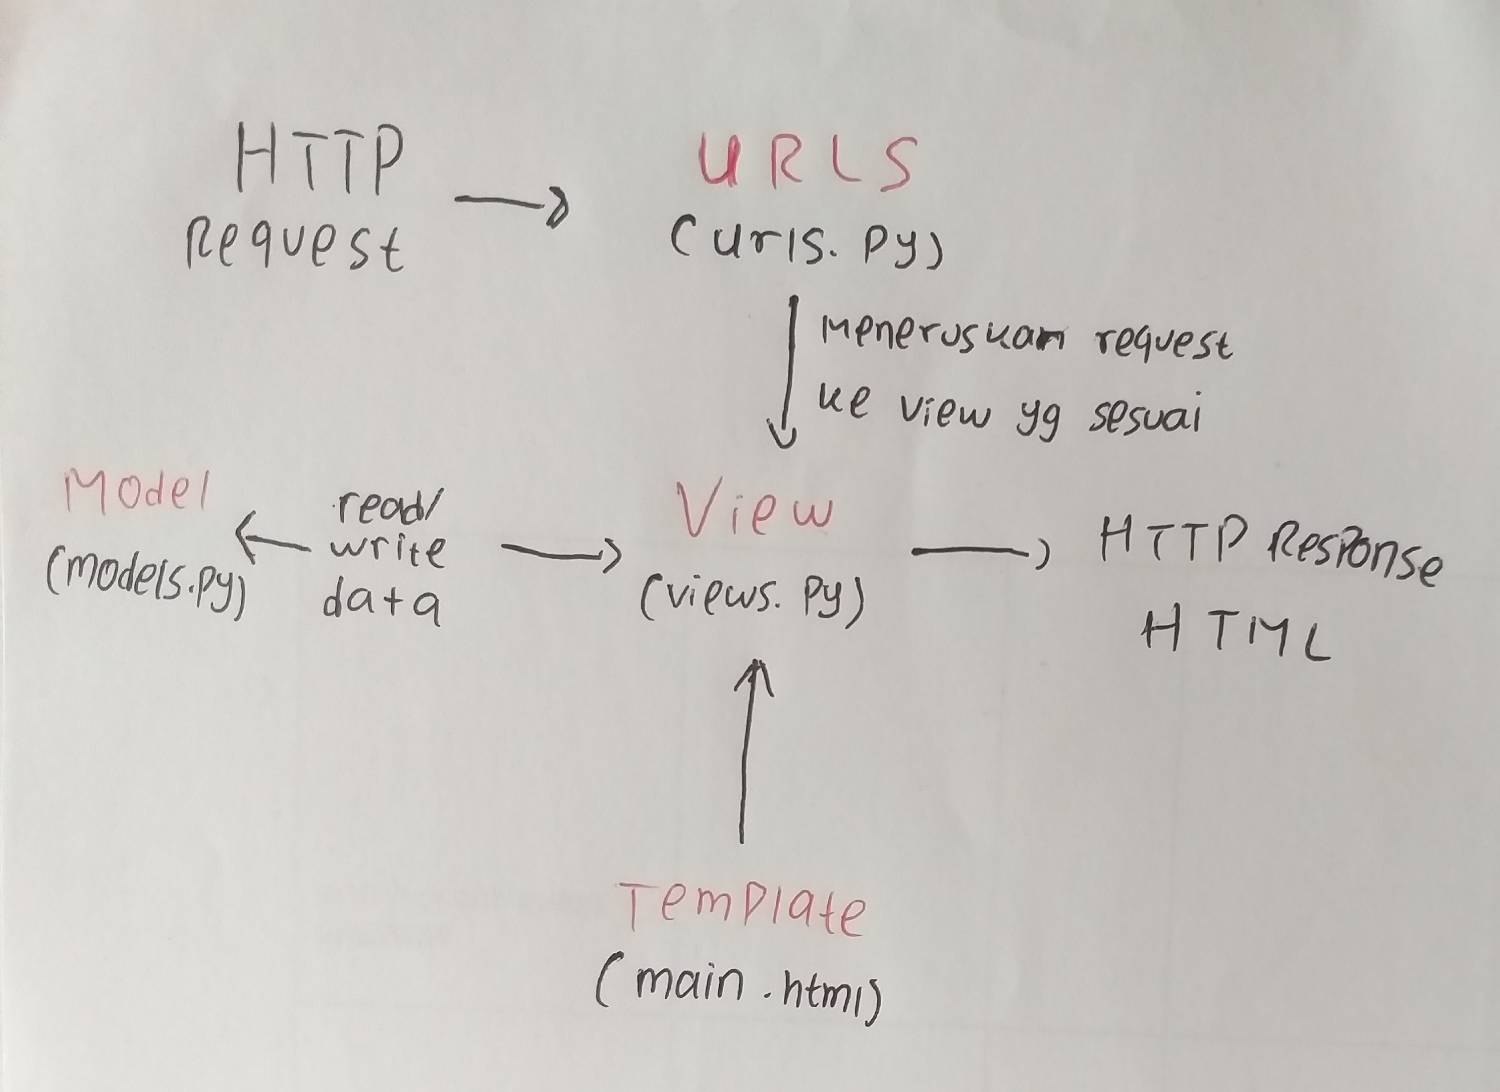 HTTP
Request
URLS
(urls.py)
Meneruskan request
ke view yg sesuai
Model
(models.py)
read/
write
data
View
(views.py)
HTTP Response
HTML
Template
(main.html)